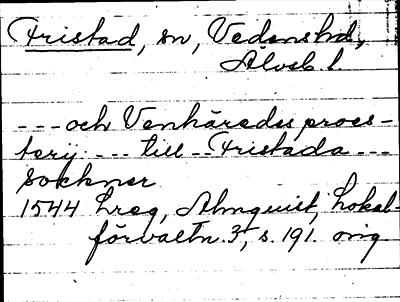 Fristad, sn, Vedens hd,
Älvsb. l.
---och Venhäredsz proes-
terij --- till --- Fristada ---
Sockner
1544 Lreg, Almquist, Lokal-
förvaltn. 3, s. 191. orig